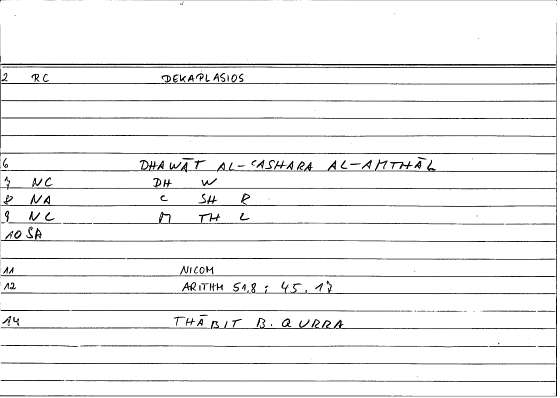 2 RC DEKAPLASIOS
6 DHAWĀT AL-ʿASHARA AL-AMTHĀL
7 NC DH W
8 NA C SH R
9 NC M TH L
10 SA
11 NICOM
12 ARITHM 51.8 ; 45.17
14 THĀBIT B. QURRA